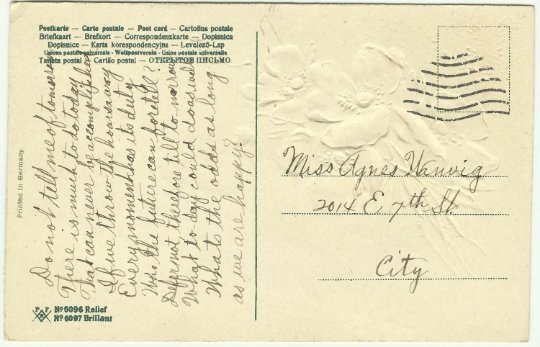 Postkarte – Carte postale – Post card – Cartolina postale
Briefkaart – Brefkort – Correspondenzkarte – Dopisnica
Dopisnice – Karta korespondencyjna – Levelező-Lap
Union postale universelle - Weltpostverein - Unione postale universale
Tarjeta postal – Cartão postal – ОТКРЫТОЕ ПИСЬМО
Do not tell me of tomorrow
There is much to do today
That can never be accomplished
If we throw the hours away
Every moment has its duty
Who the future can foretell?
Defer not therefore till to morrow
What to day could do as well
What's the odds as long
as we are happy?
Miss Agnes
2014 E 7th St.
City
Printed in Germany.
P F
No 6096 Relief
No 6097 Brillant